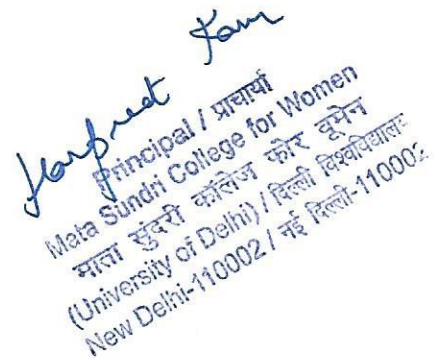 Harpreet Kaur
Principal / प्राचार्या
Mata Sundri College for Women
माता सुंदरी कॉलेज फॉर वूमेन
(University of Delhi) / दिल्ली विश्वविद्यालय
New Delhi-110002 / नई दिल्ली-110002